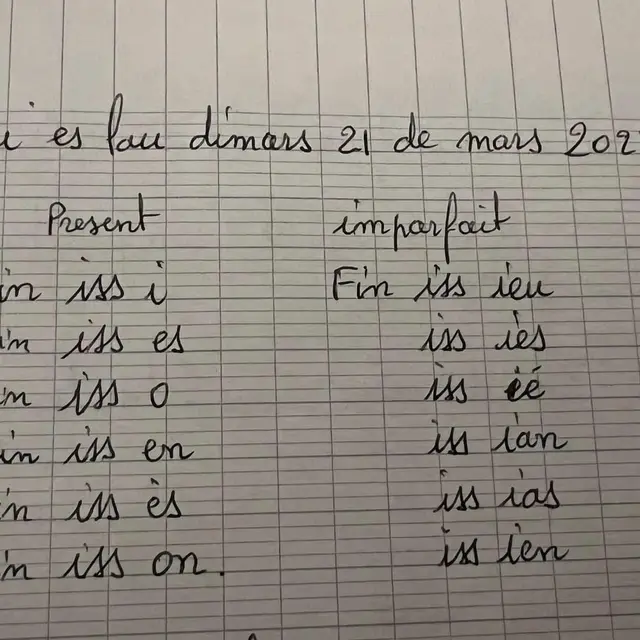 i es lou dimars 21 de mars 202
Present imparfait
in iss i Fin iss ieu
in iss es iss ies
in iss o iss ié
in iss en iss ian
in iss ès iss ias
in iss on. iss ien